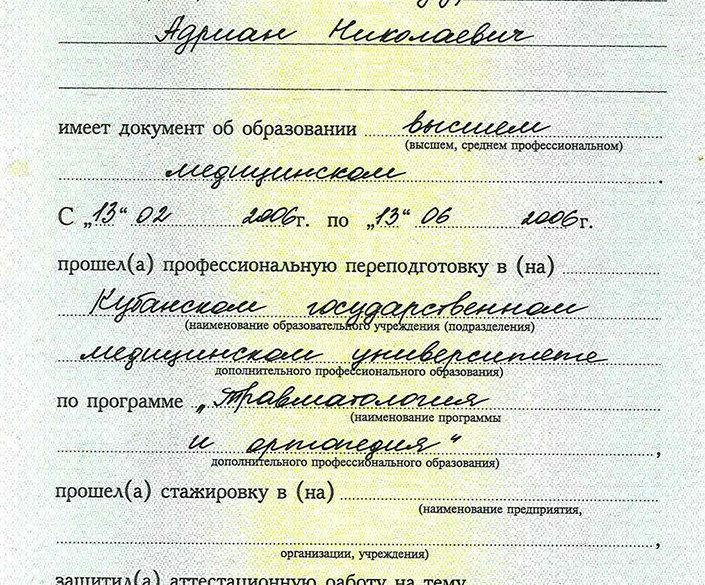 Адриан Николаевич
имеет документ об образовании высшем
(высшем, среднем профессиональном)
медицинском.
С „13“ 02 2006г. по „13“ 06 2006г.
прошел(а) профессиональную переподготовку в (на)
Кубанском государственном
(наименование образовательного учреждения (подразделения)
медицинском университете
дополнительного профессионального образования)
по программе „Травматология
(наименование программы
и ортопедия“,
дополнительного профессионального образования)
прошел(а) стажировку в (на)
(наименование предприятия,
,
организации, учреждения)
защитил(а) аттестационную работу на тему